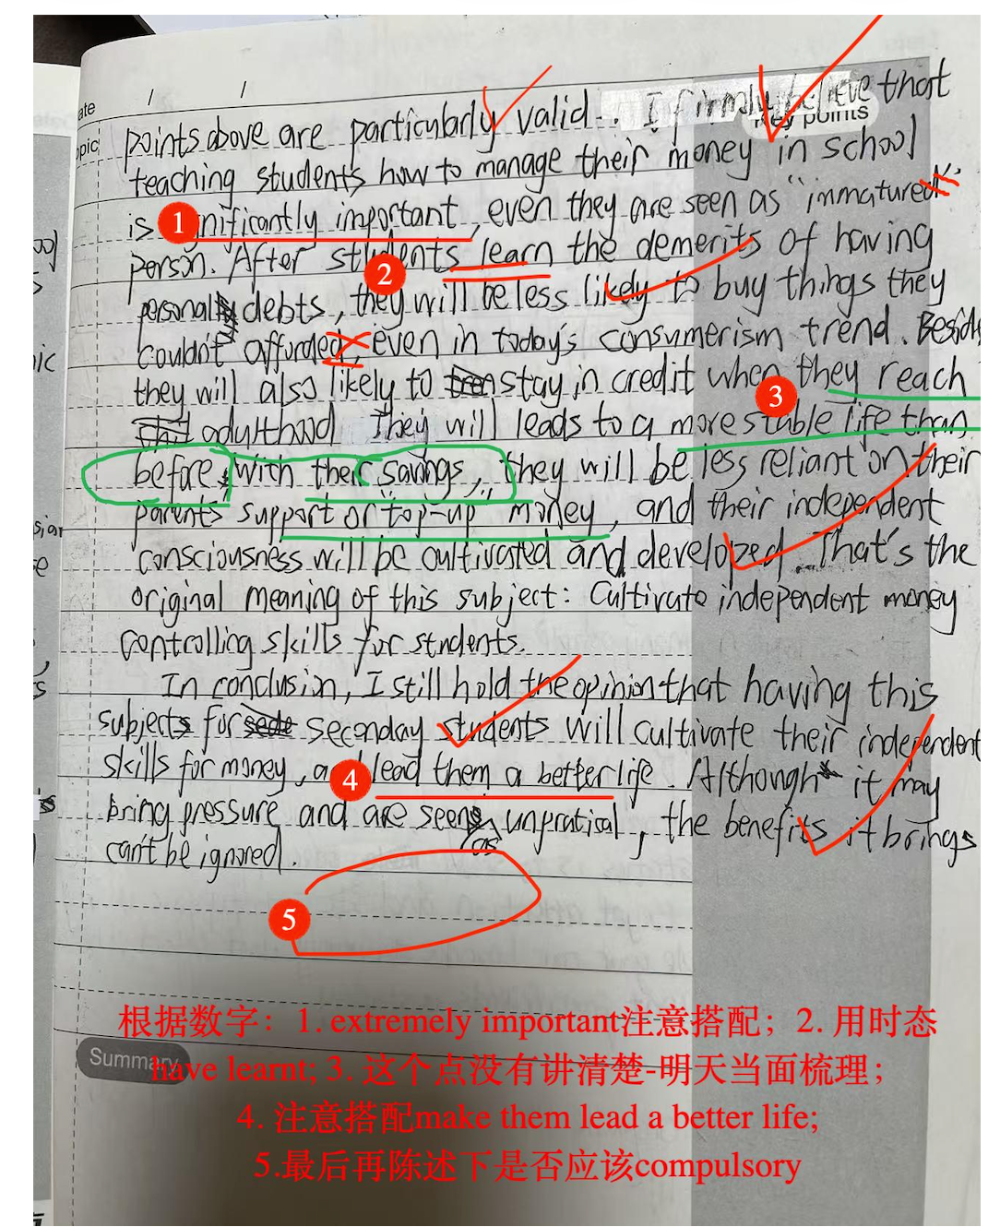 ate / /
opic
Key points
points above are particularly valid. I firmly believe that
teaching students how to manage their money in school
is 1 gnificantly important, even they are seen as "immatured"
person. After students learn the demerits of having
2
personal debts, they will be less likely to buy things they
couldn't afforded, even in today's consumerism trend. Beside
they will also likely to stay in credit when they reach
3
adulthood. They will leads to a more stable life than
before, with their savings, they will be less reliant on their
parents' support or "top-up" money, and their independent
consciousness will be cultivated and developed. That's the
original meaning of this subject: Cultivate independent money
controlling skills for students.
In conclusion, I still hold the opinion that having this
subject for seconday students will cultivate their independent
skills for money, a 4 lead them a better life. Although it may
bring pressure and are seen as unpratical, the benefits it brings
can't be ignored.
5
根据数字：1. extremely important注意搭配；2. 用时态
have learnt; 3. 这个点没有讲清楚-明天当面梳理；
4. 注意搭配make them lead a better life;
5.最后再陈述下是否应该compulsory
Summary